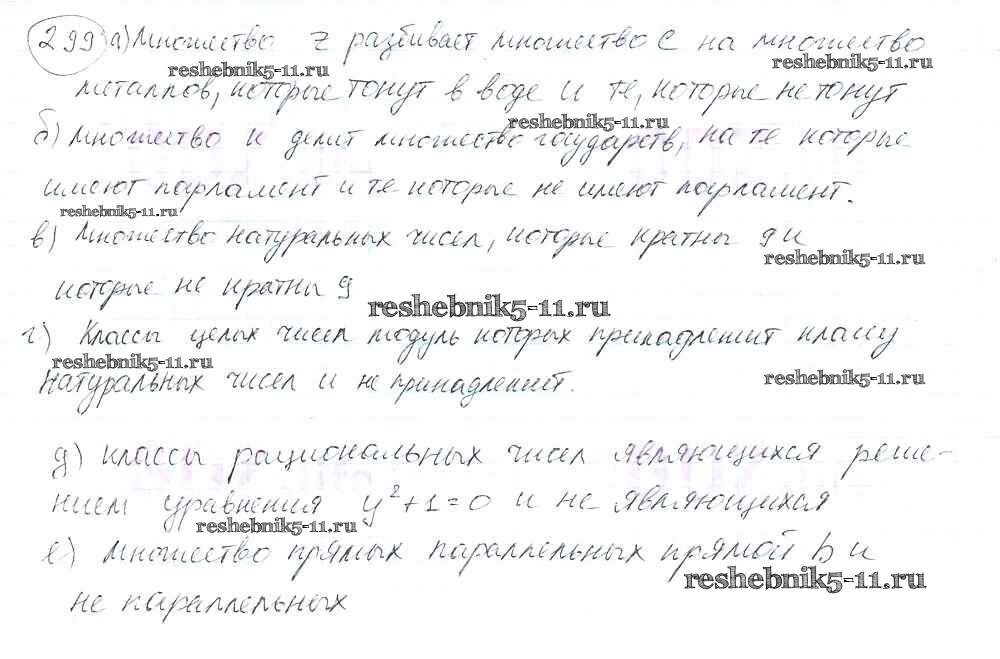 299 а) Множество Z разбивает множество C на множество
reshebnik5-11.ru
reshebnik5-11.ru
металлов, которые тонут в воде и те, которые не тонут
reshebnik5-11.ru
б) Множество K делит множество государств, на те которые
имеют парламент и те которые не имеют парламент.
reshebnik5-11.ru
в) Множество натуральных чисел, которые кратны 9 и
reshebnik5-11.ru
которые не кратны 9
reshebnik5-11.ru
г) Классы целых чисел модуль которых принадлежит классу
reshebnik5-11.ru
натуральных чисел и не принадлежит.
reshebnik5-11.ru
д) классы рациональных чисел являющихся реше-
нием уравнения y²+1=0 и не являющихся
reshebnik5-11.ru
е) Множество прямых параллельных прямой b и
reshebnik5-11.ru
не параллельных